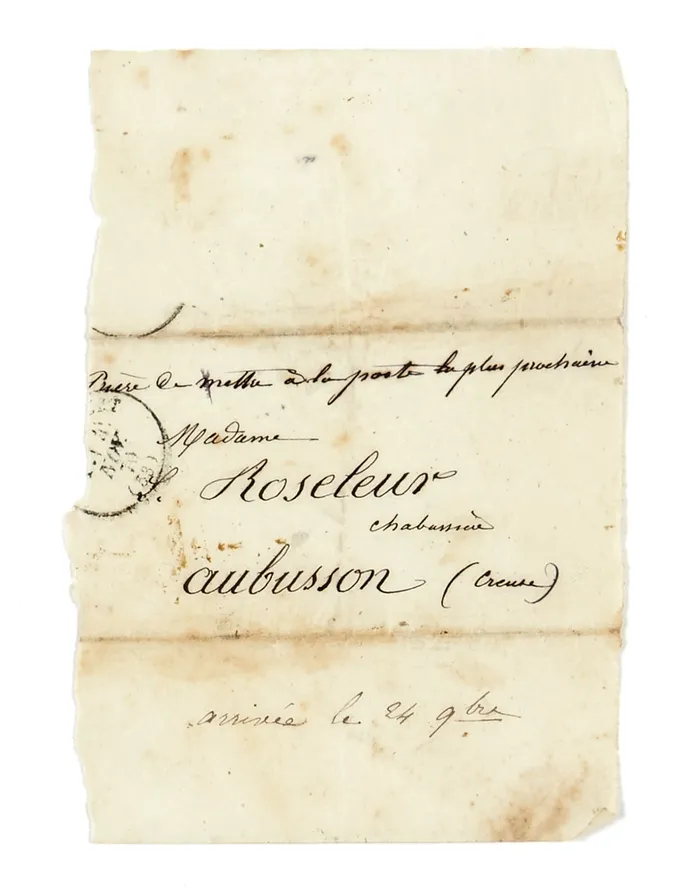 Prière de mettre à la poste la plus prochaine
Madame
Roseleur
chabassière
aubusson (Creuse)
arrivée le 24 9bre
NOV.
(53)